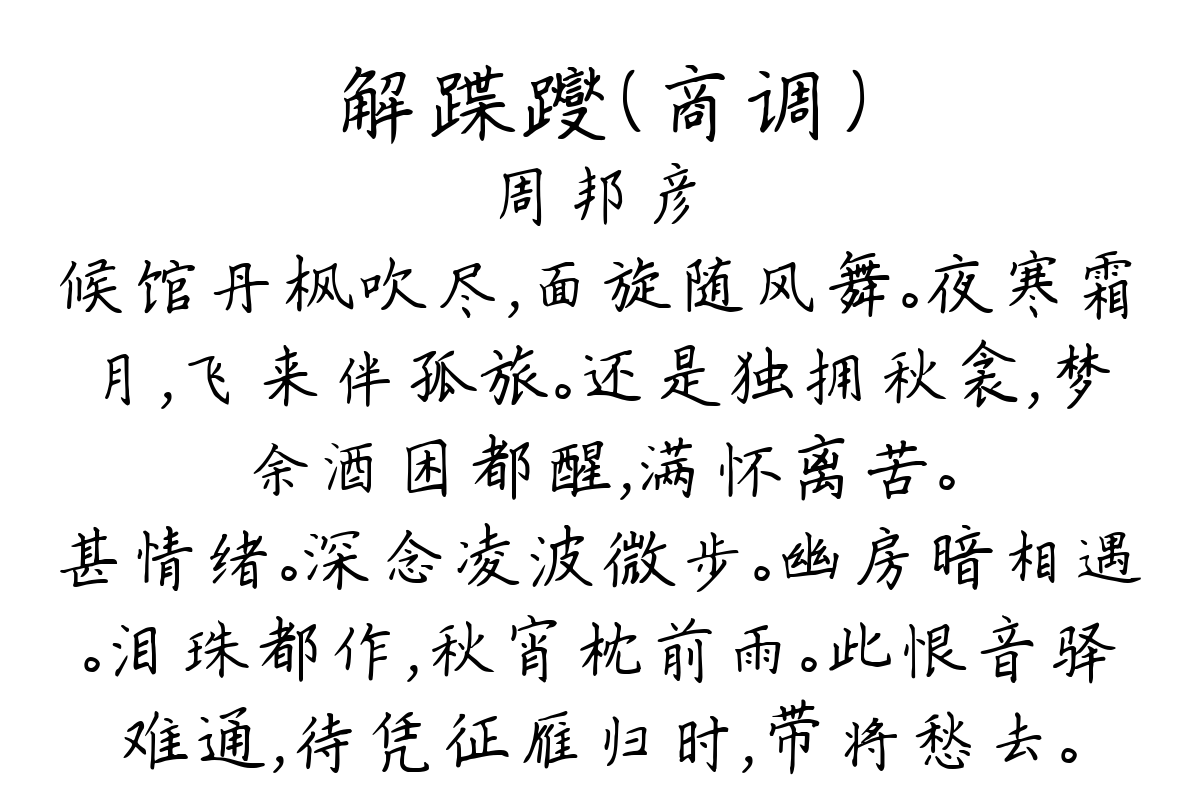 解蹀躞(商调)
周邦彦
候馆丹枫吹尽,面旋随风舞。夜寒霜
月,飞来伴孤旅。还是独拥秋衾,梦
余酒困都醒,满怀离苦。
甚情绪。深念凌波微步。幽房暗相遇
。泪珠都作,秋宵枕前雨。此恨音驿
难通,待凭征雁归时,带将愁去。